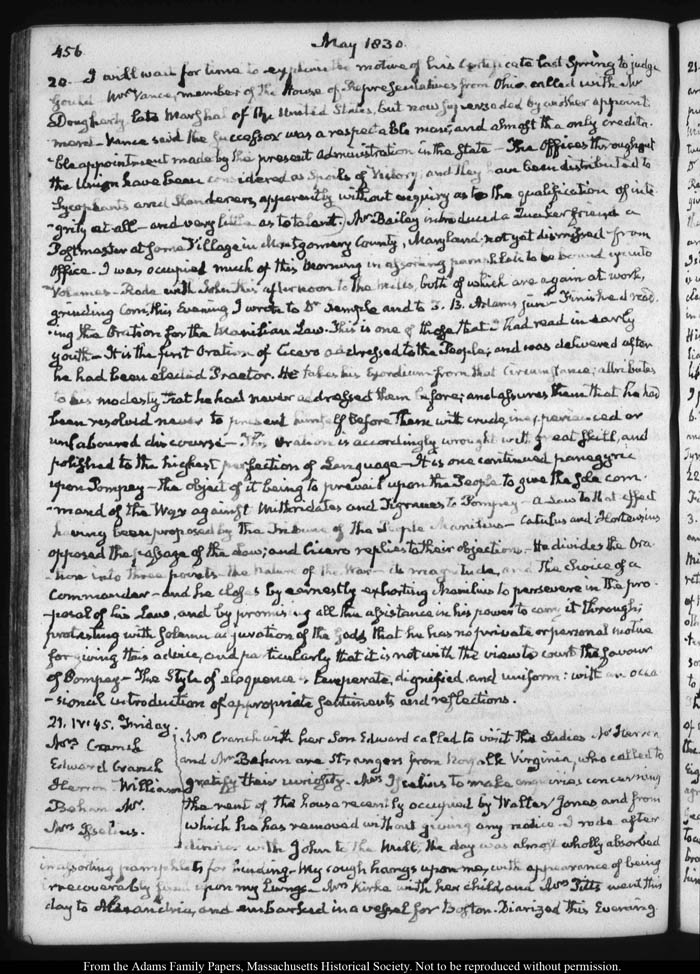 456
May 1830.
20. I will wait for time to explain the motive of his Certificate last Spring to judge
Gould Mr Vance, member of the House of Representatives from Ohio called with Mr
Dougherty late Marshal of the United States, but now superseded by another appoint-
ment. Vance said the successor was a respectable man, and almost the only credita-
ble appointment made by the present Administration in the State — The Offices throughout
the Union have been considered as Spoils of Victory, and they have been distributed to
Sycophants and Slanderers, apparently without enquiry as to the qualification of inte-
grity at all — and very little as to talent. Mr Bailey introduced a Quaker friend a
Postmaster at some Village in Montgomery County, Maryland not yet dismissed from
Office. I was occupied much of this Morning in assorting pamphlets to be bound up into
Volumes — Rode with John this afternoon to the Mills, both of which are again at work,
grinding Corn, this Evening I wrote to Dr Semple and to J. B. Adams junr — Finished read-
ing the Oration for the Manilian Law. This is one of those that I had read in early
youth — It is the first Oration of Cicero addressed to the People; and was delivered after
he had been elected Praetor. He takes his Exordium from that Circumstance; attributes
to his modesty that he had never addressed them before; and assures them that he had
been resolved never to present himself before them with crude, inexperienced or
unlaboured discourse — This Oration is accordingly wrought with great skill, and
polished to the highest perfection of Language — It is one continued panegyric
upon Pompey — The object of it being to prevail upon the People to give the sole com-
mand of the War against Mithridates and Tigranes to Pompey — a Law to that effect
having been proposed by the Tribune of the People Manilius — Catulus and Hortensius
opposed the passage of the Law; and Cicero replies to their objections — He divides the Ora-
tion into three points — the Nature of the War — its magnitude, and The choice of a
Commander — and he closes by earnestly exhorting Manilius to persevere in the pro-
posal of his Law, and by promising all the assistance in his power to carry it through;
protesting with solemn adjuration of the Gods that he has no private or personal motive
for giving this advice, and particularly that it is not with the view to court the favour
of Pompey — The Style of eloquence is temperate, dignified, and uniform: with an occa-
sional introduction of appropriate sentiments and reflections.
21. IV:45. Friday.
Mrs Cranch
Edward Cranch
Herron William
Behan Mr.
Mrs Iselius.
Mrs Cranch with her Son Edward called to visit the Ladies Mr Herron
and Mr Behan are Strangers from Virginia, who called to
gratify their curiosity. Mrs Iselius to make enquiries concerning
the rent of the house recently occupied by Walter Jones and from
which he has removed without giving any notice. I rode after
dinner with John to the Mill. The day was almost wholly absorbed
in assorting pamphlets for binding. My cough hangs upon me, with appearance of being
irrecoverably fixed upon my Lungs — Mrs Kirke with her child, and Mrs Titts went this
day to Alexandria, and embarked in a vessel for Boston. Diarized this Evening
From the Adams Family Papers, Massachusetts Historical Society. Not to be reproduced without permission.